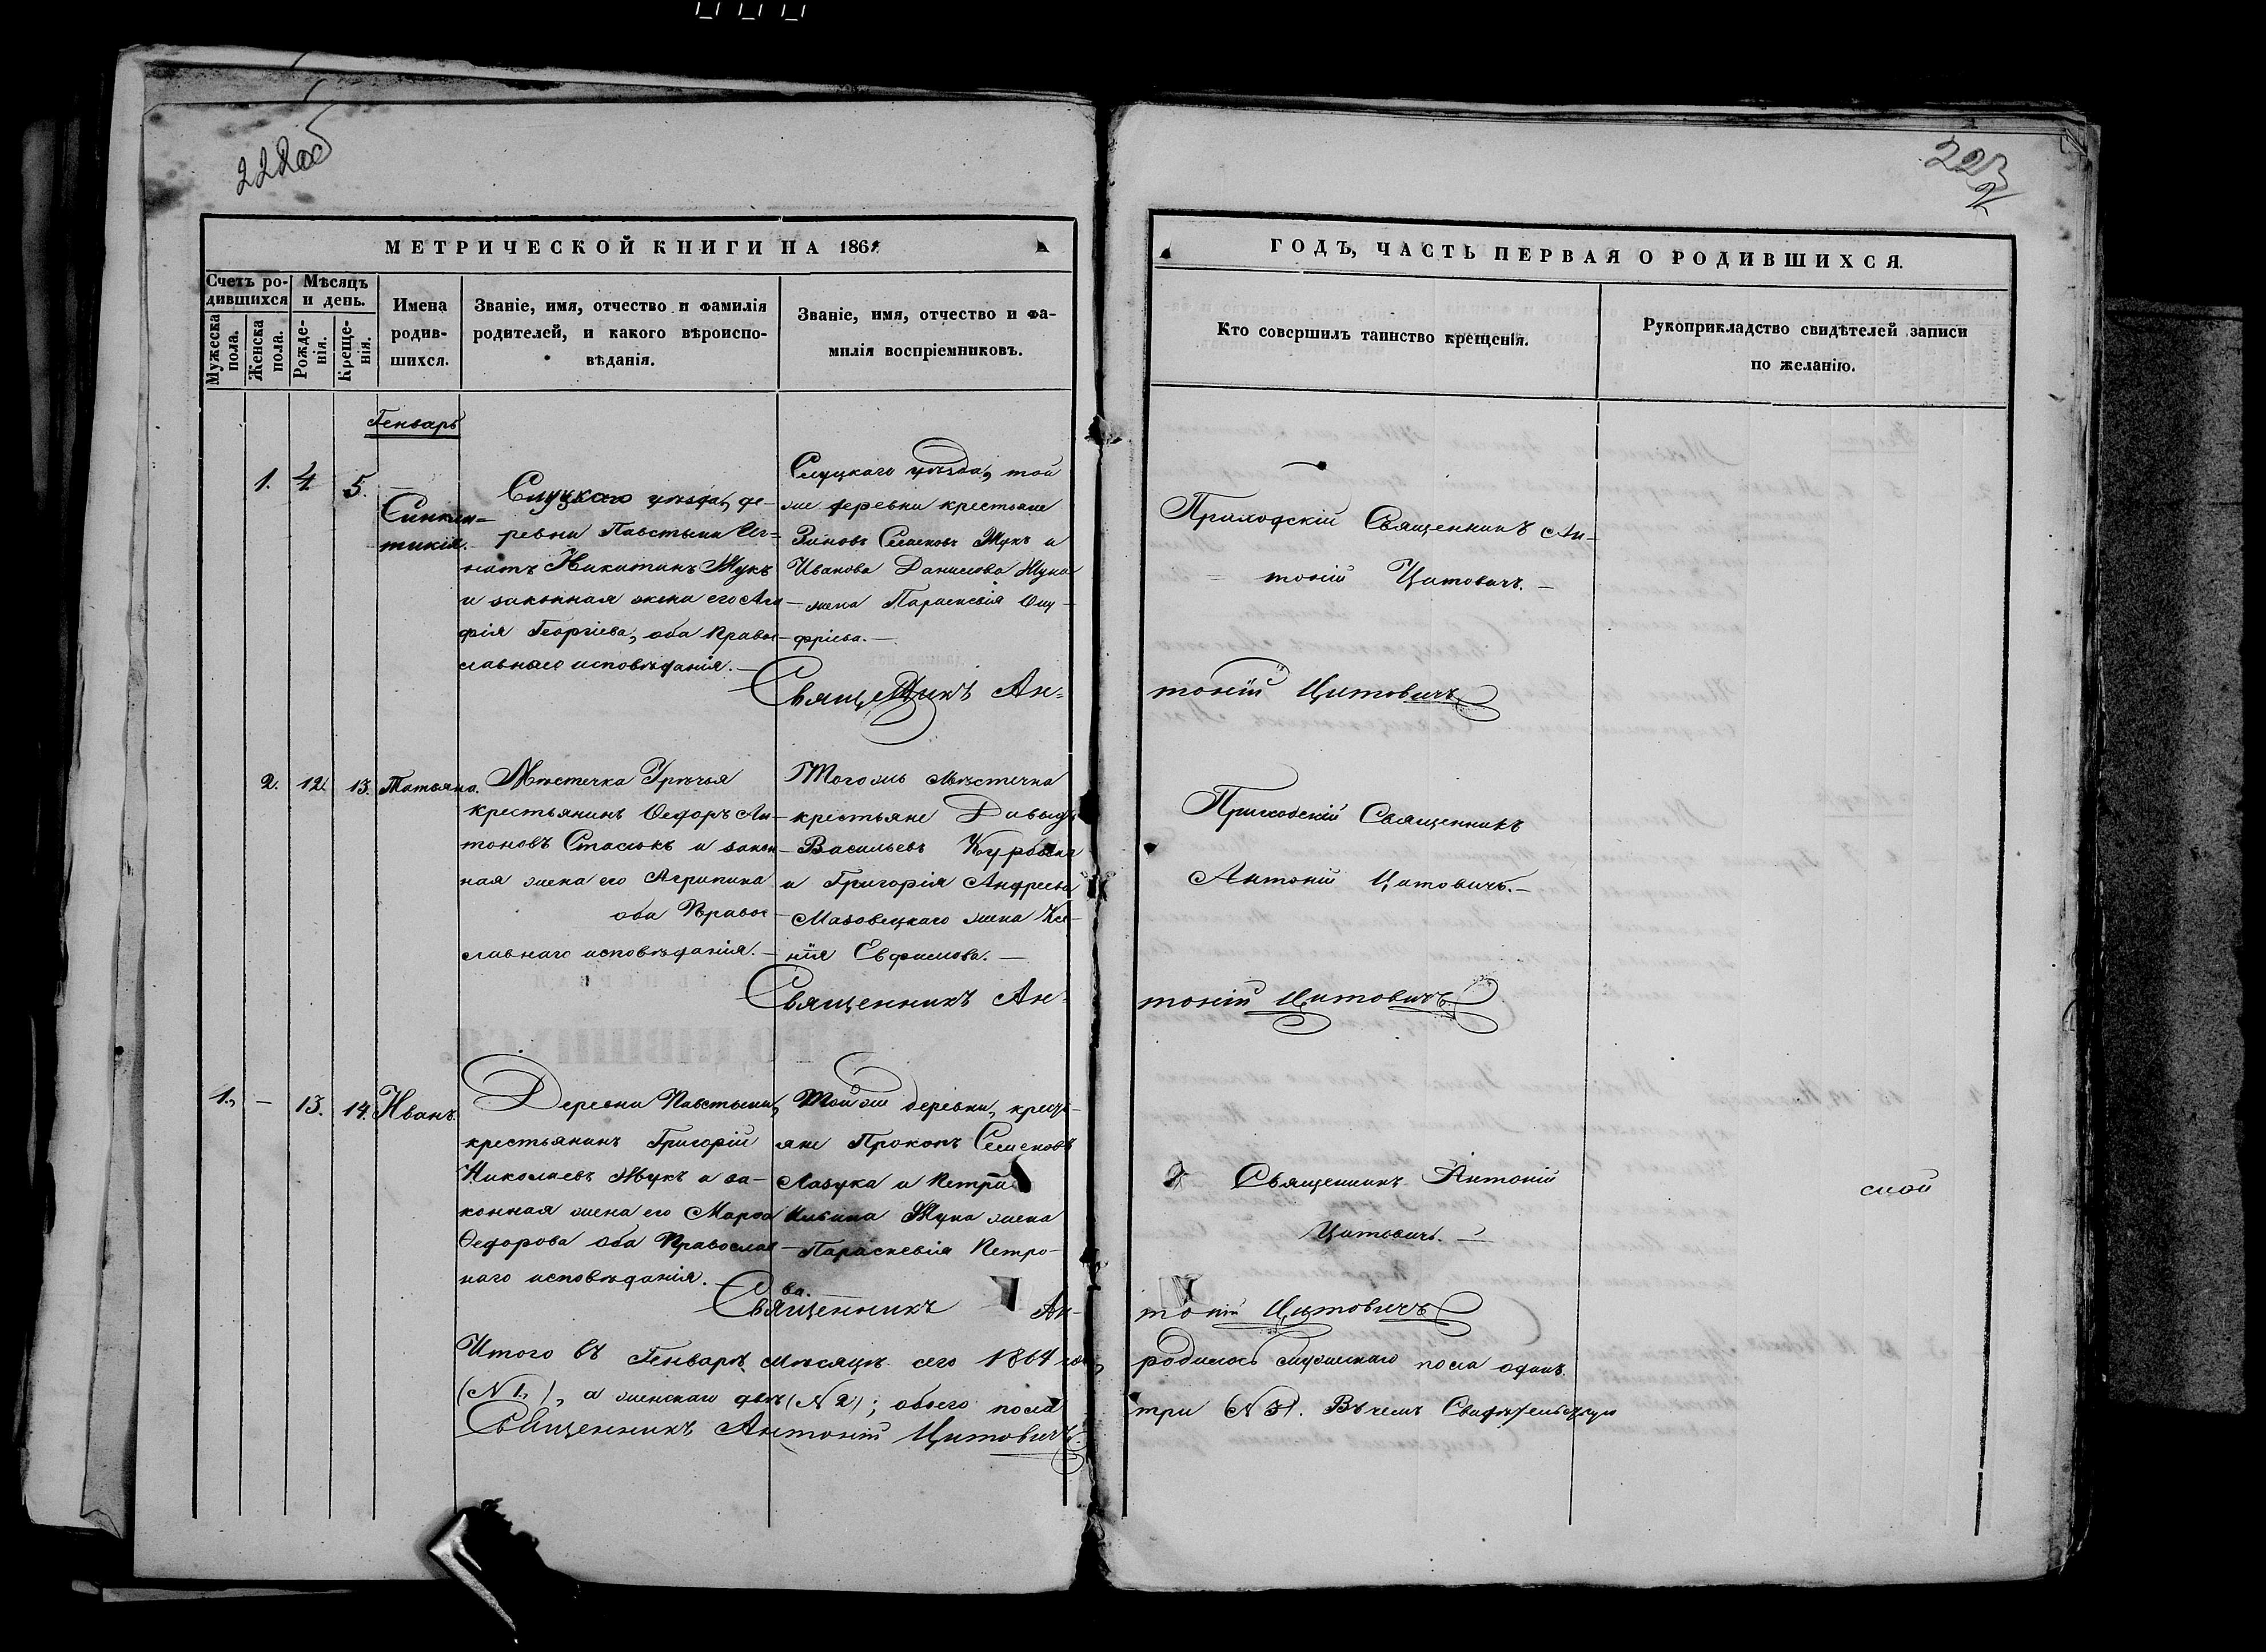 222об
223
МЕТРИЧЕСКОЙ КНИГИ НА 1864
ГОДЪ, ЧАСТЬ ПЕРВАЯ О РОДИВШИХСЯ.
Счетъ ро-
дившихся
Мѣсяцъ
и день.
Мужеска
пола.
Женска
пола.
Рожде-
нія.
Креще-
нія.
Имена
родив-
шихся.
Званіе, имя, отчество и фамилія
родителей, и какого вѣроиспо-
вѣданія.
Званіе, имя, отчество и фа-
милія воспріемниковъ.
Кто совершилъ таинство крещенія.
Рукоприкладство свидѣтелей записи
по желанію.
Генварь
1. 4. 5.
Синкли-
тикія.
Слуцкаго уѣзда, де-
ревни Павстыни Иг-
натъ Никитинъ Жукъ
и законная жена его Ага-
фія Георгіева, оба Право-
славнаго исповѣданія.
Слуцкаго уѣзда, той
же деревни крестьяне
Зиновъ Семеновъ Жукъ и
Иванова Данилова Жука
жена Параскевія Ону-
фріева.
Приходскій Священникъ Ан-
тоній Цитовичъ.
Священникъ Ан-
тоній Цитовичъ
2. 12. 13. Татьяна.
Мѣстечка Урѣчья
крестьянинъ Ѳедоръ Ан-
тоновъ Стасюкъ и закон-
ная жена его Агрипина
оба Право-
славнаго исповѣданія.
Того жъ мѣстечка
крестьяне Давыдъ
Васильевъ
и Григорія Андреева
Мазовецкаго жена Ксе-
нія Евфимова.
Приходскій Священникъ
Антоній Цитовичъ.
Священникъ Ан-
тоній Цитовичъ
1. – 13. 14. Иванъ.
Деревни Павстыни,
крестьянинъ Григорій
Николаевъ Жукъ и за-
конная жена его Марѳа
Ѳедорова оба Православ-
наго исповѣданія.
Той же деревни, кресть-
яне Прокопъ Семеновъ
Лазука и Петра
Ильина Жука жена
Параскевія Петро-
ва.
Священникъ Антоній
Цитовичъ.
ской
Священникъ Ан-
тоній Цитовичъ
Итого въ Генварѣ мѣсяцѣ сего 1864 года
родилось мужескаго пола одинъ
(N 1.), а женскаго двѣ (N 2); обоего пола
три (N 3). Въ чемъ Свидѣтельствую
Священникъ Антоній Цитовичъ.